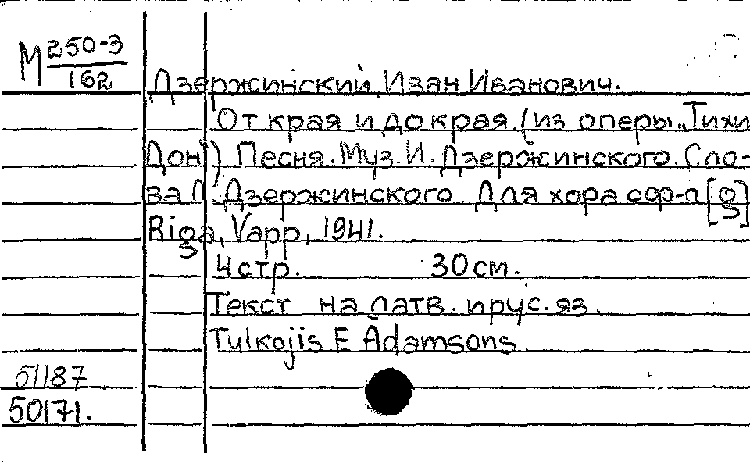 М 250-3
162
Дзержинский, Иван Иванович.
От края и до края. (из оперы „Тихи
Дон") Песня. Муз. И. Дзержинского. Сло-
ва Л. Дзержинского. Для хора с ф-п [о]
Riga, Vapp, 1941.
4 стр. 30 см.
Текст на латв. и рус. яз.
Tulkojis E Adamsons
51187
50171.